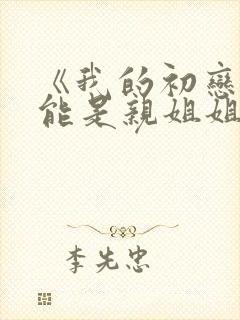 《我的初戀
能是親姐姐
李先忠